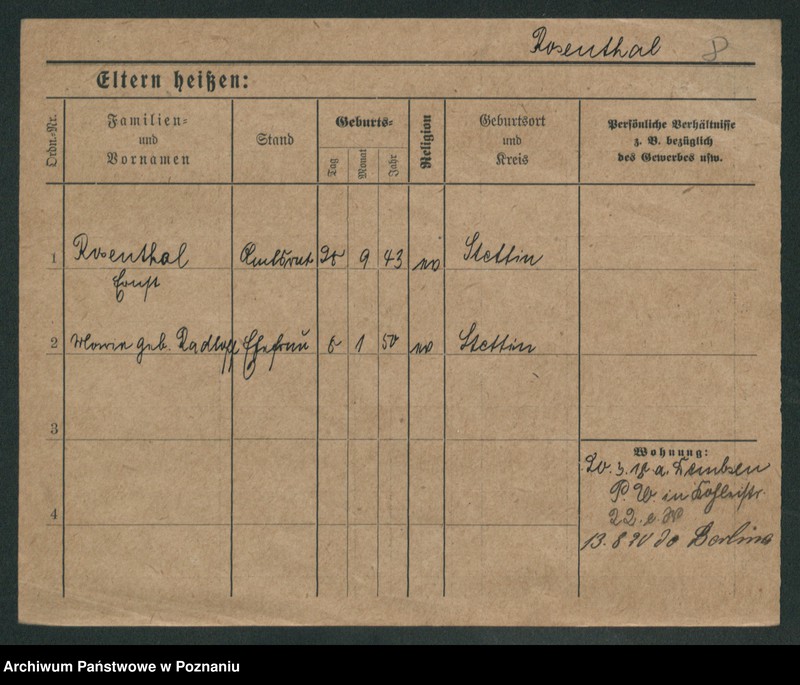 Rosenthal 8
Eltern heißen:
Ordn.-Nr.
Familien- und Vornamen
Stand
Geburts-
Tag
Monat
Jahr
Religion
Geburtsort und Kreis
Persönliche Verhältnisse
z. B. bezüglich
des Gewerbes usw.
1 Rosenthal Amtsrat 9 43 ev Stettin
Ernst
2 Marie geb. Radloff Ehefrau 8 1 50 ev Stettin
3
Wohnung:
4
P. W. in
22.
13. 8 20 Berlin
Archiwum Państwowe w Poznaniu